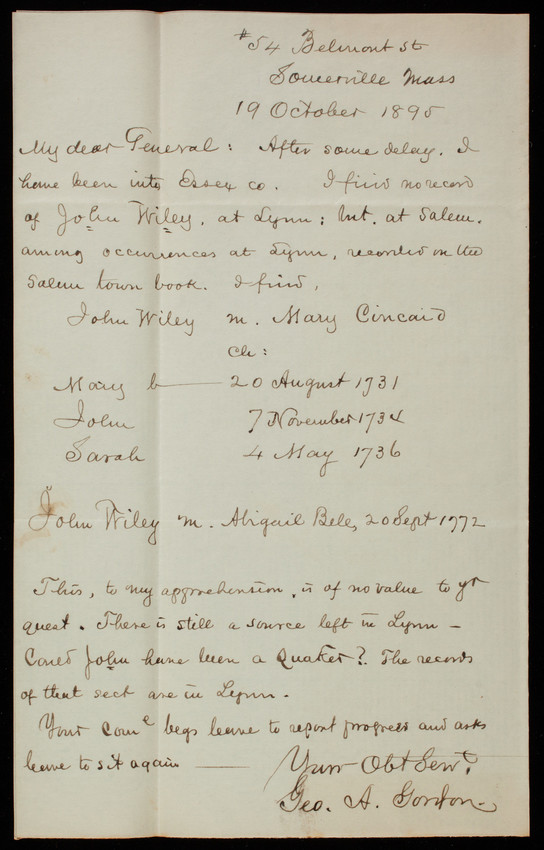 #54 Belmont St
Somerville Mass
19 October 1895
My dear General: After some delay, I
have been into Essex co. I find no record
of John Wiley, at Lynn; but, at Salem,
among occurrences at Lynn, recorded on the
Salem town book. I find,
John Wiley m. Mary Cincaid
ch:
Mary b — 20 August 1731
John 7 November 1734
Sarah 4 May 1736
John Wiley m. Abigail Bele, 20 Sept 1772
This, to my apprehension, is of no value to yr
quest. There is still a source left in Lynn –
Could John have been a Quaker? The records
of that sect are in Lynn.
Your Come begs leave to report progress and asks
leave to sit again —
Your Obt Servt,
Geo. A. Gordon